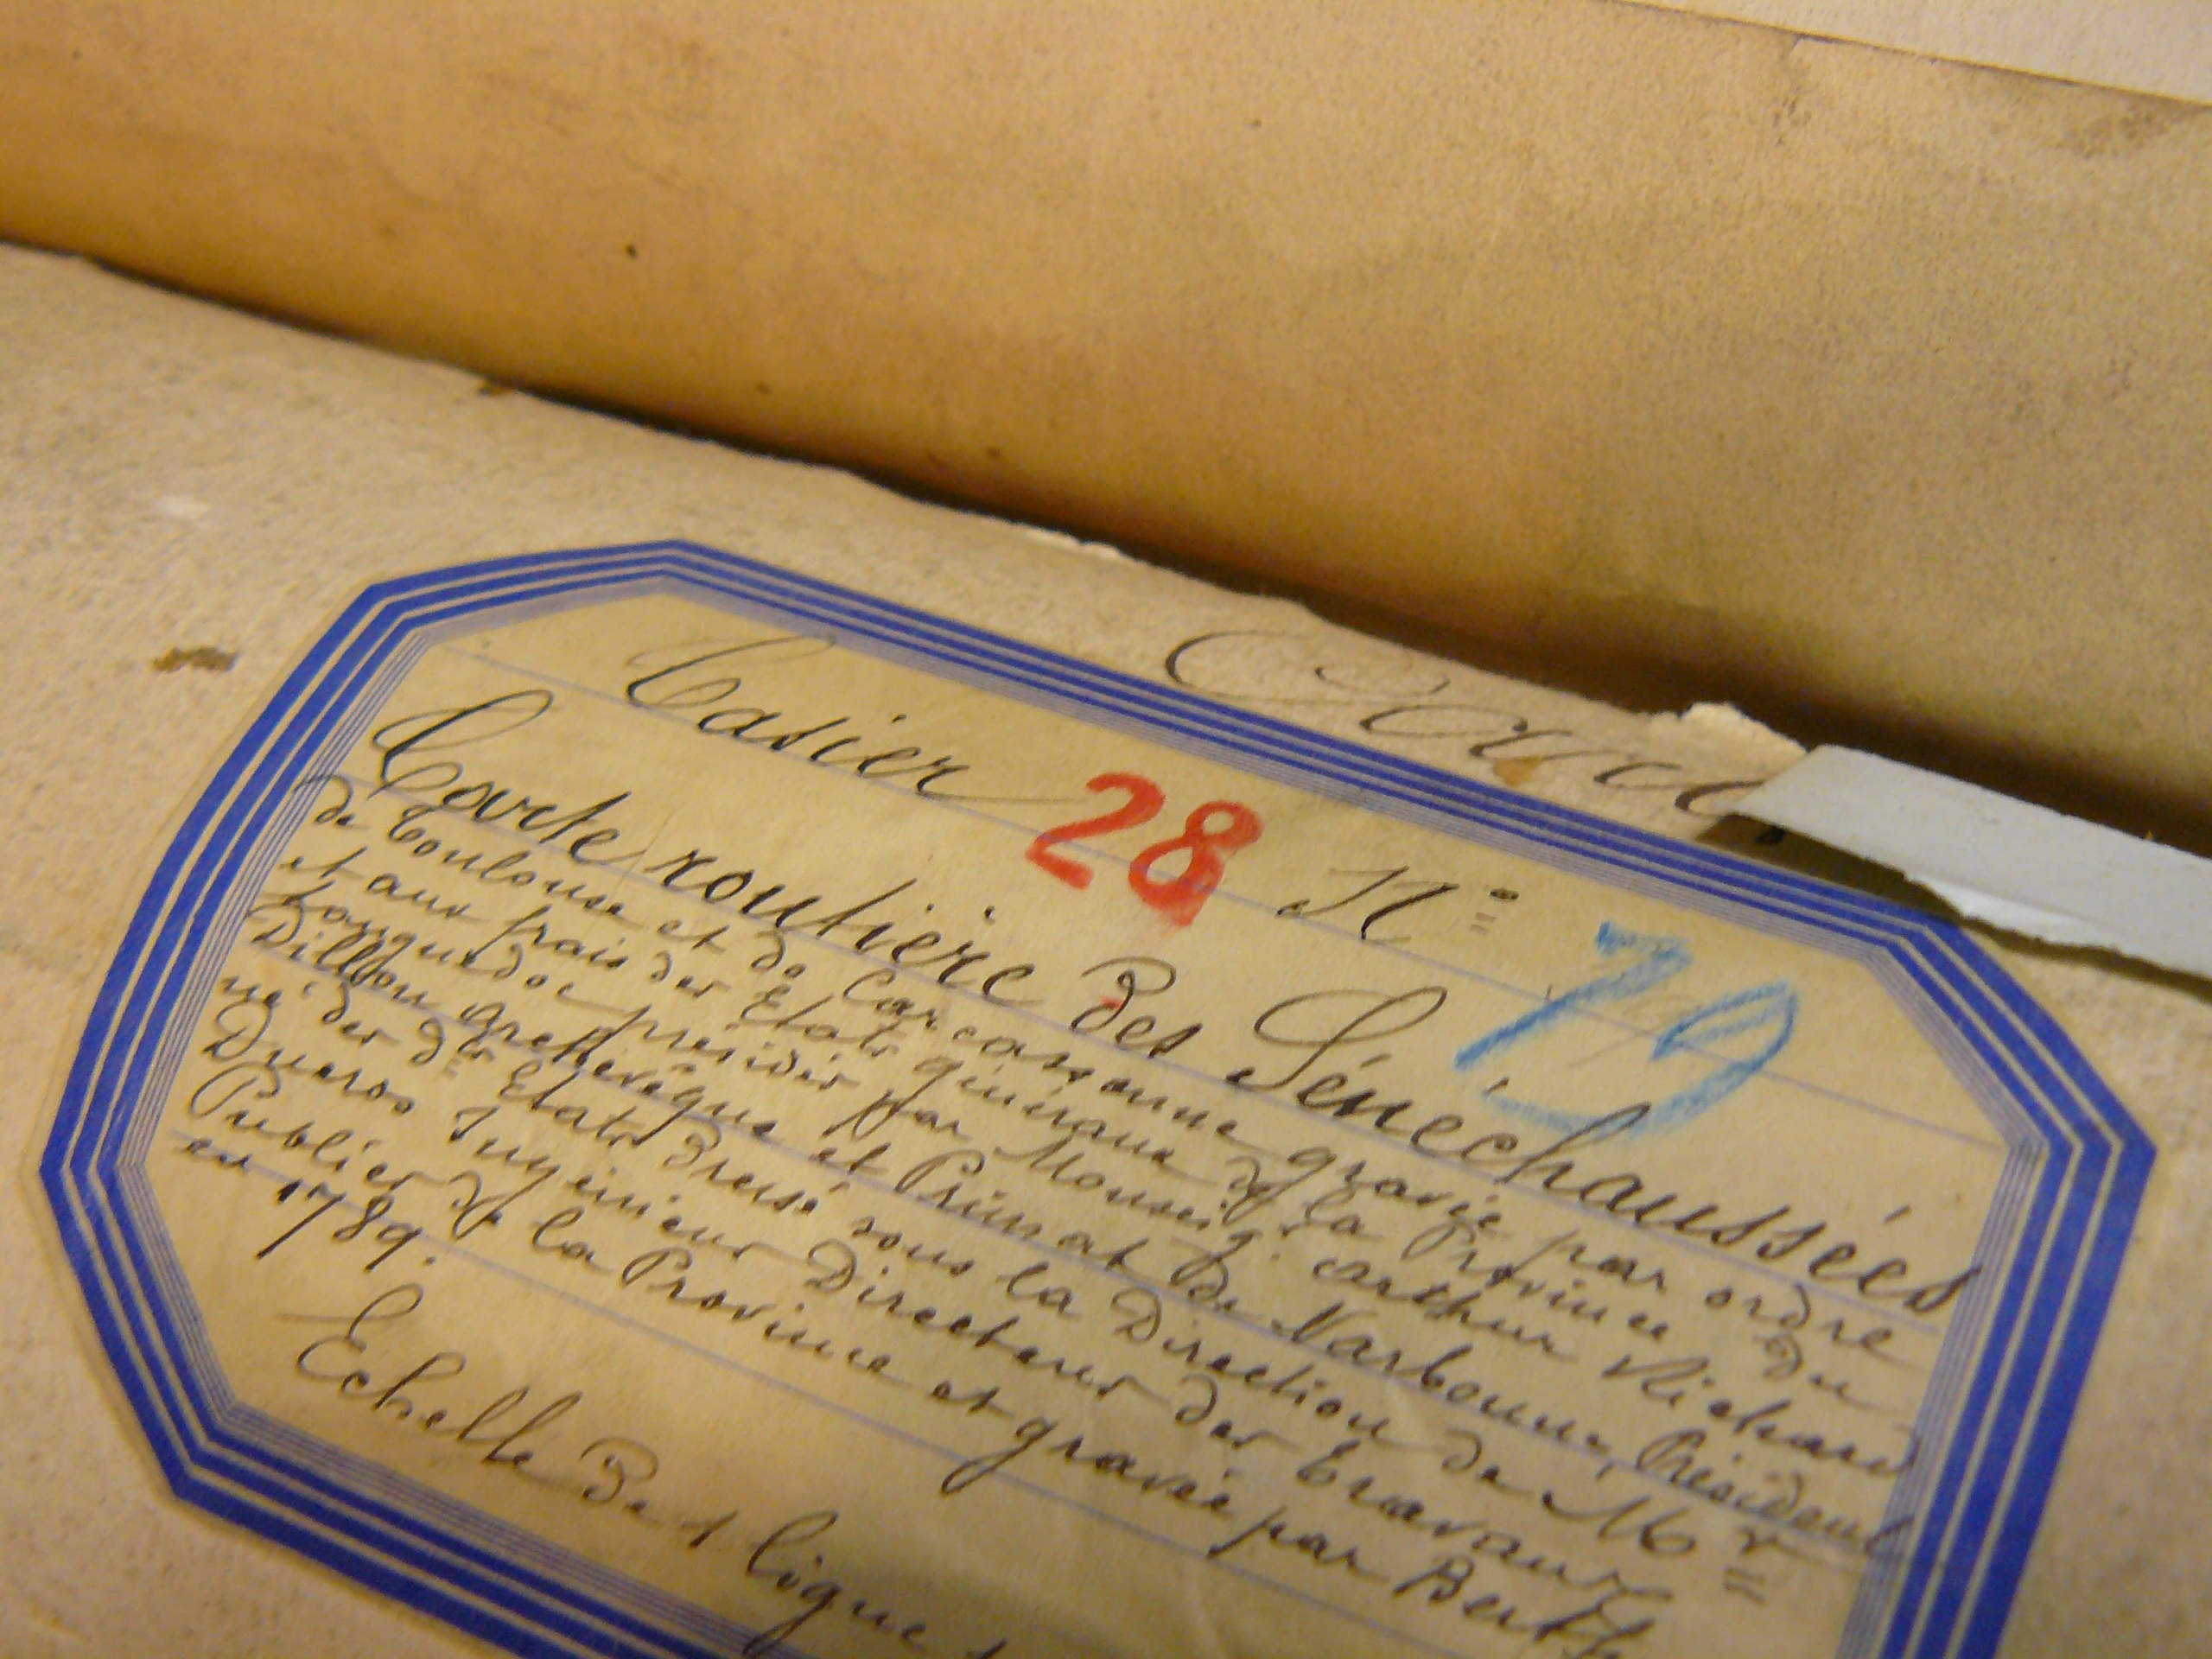 Casier 28 Nº 79
Carte routière des Sénéchaussées
de Toulouse et de Carcassonne gravée par ordre
et aux frais des Etats généraux de la Province du
Languedoc présidés par Monseigr. Arthur Richard
Dillon Archevêque et Primat de Narbonne, Président
né des ds Etats dressé sous la Direction de Mr
Ducros Ingénieur Directeur des Travaux
Publics de la Province et gravée par Berth
en 1789.
Echelle de 1 ligne